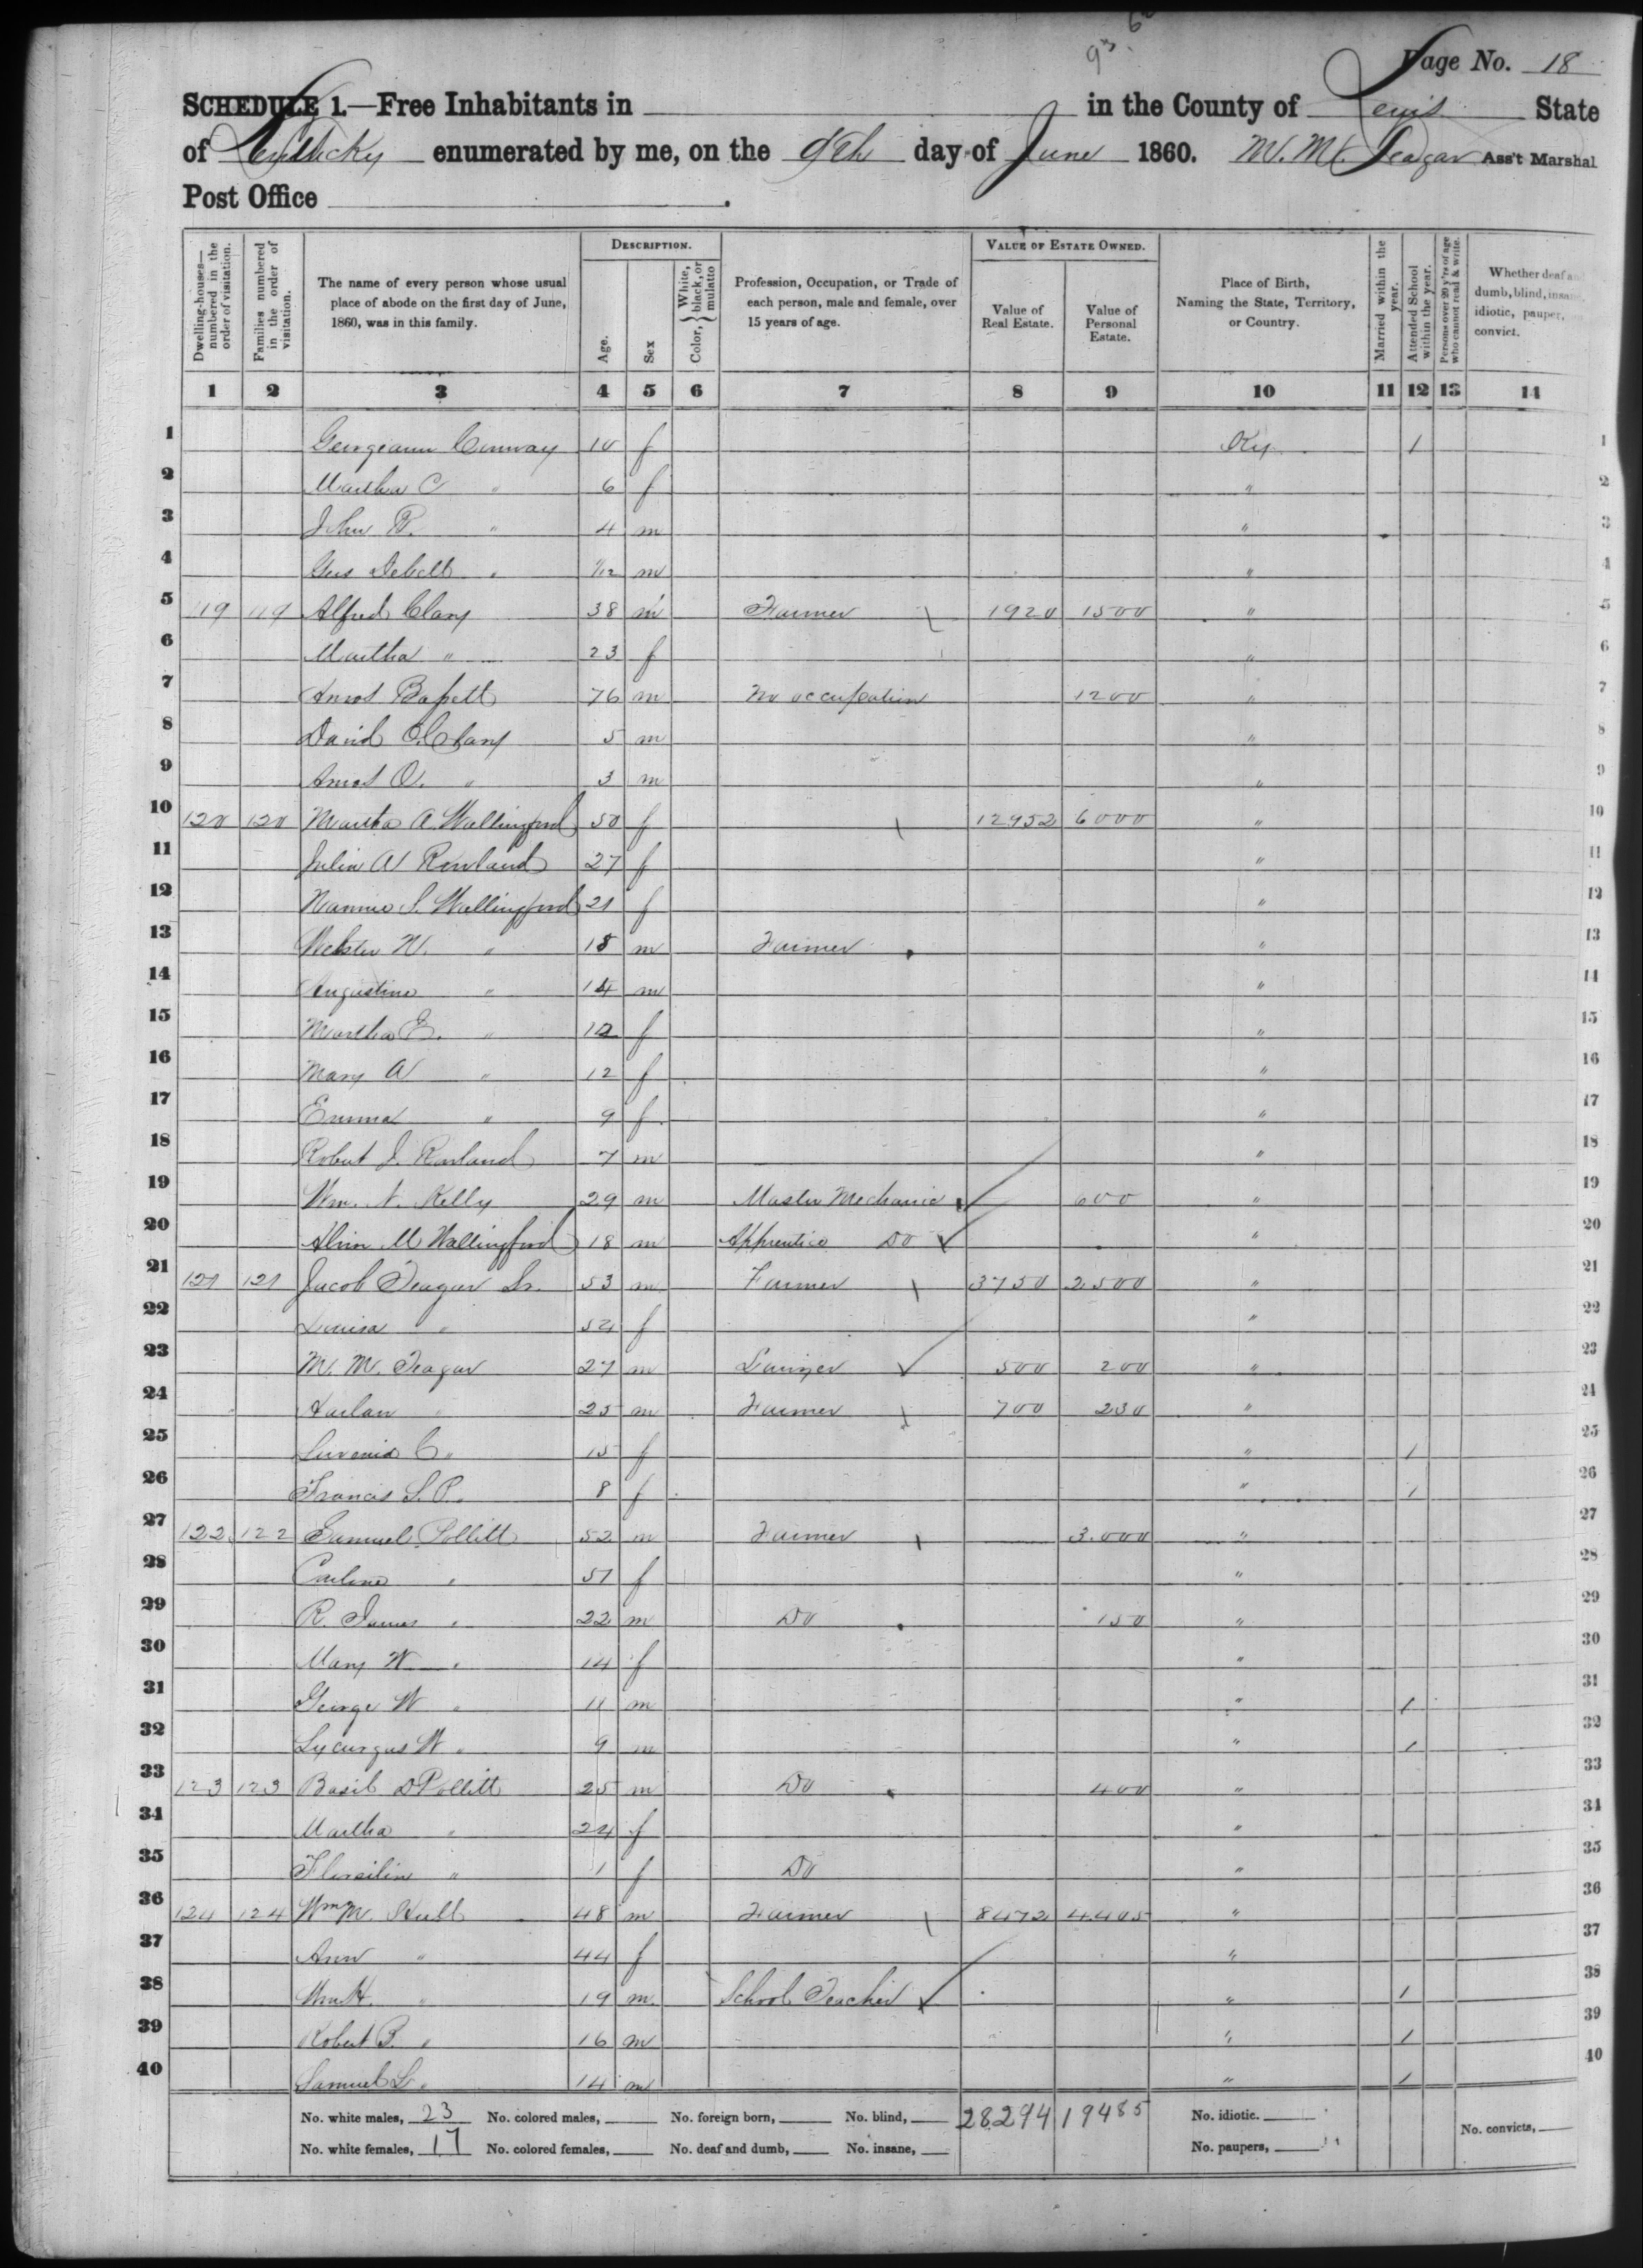 Page No. 18
SCHEDULE 1.—Free Inhabitants in in the County of Lewis State
of Kentucky enumerated by me, on the 9th day of June 1860. W. M. Teagar Ass't Marshal
Post Office .
Dwelling-houses—numbered in the order of visitation. Families numbered in the order of visitation. The name of every person whose usual place of abode on the first day of June, 1860, was in this family. DESCRIPTION. Age. Sex Color, { White, black, or mulatto Profession, Occupation, or Trade of each person, male and female, over 15 years of age. VALUE OF ESTATE OWNED. Value of Real Estate. Value of Personal Estate. Place of Birth, Naming the State, Territory, or Country. Married within the year. Attended School within the year. Persons over 20 y'rs of age who cannot read & write. Whether deaf and dumb, blind, insane, idiotic, pauper, or convict.
1 2 3 4 5 6 7 8 9 10 11 12 13 14
1 Georgeann Conway 10 f Ky 1 1
2 Martha C " 6 f " 2
3 John P. " 4 m " 3
4 Geo Debell " 1/12 m " 4
5 119 119 Alfred Clary 38 m Farmer 1920 1500 " 5
6 Martha " 23 f " 6
7 Amos Bassett 76 m No occupation 1200 " 7
8 David O. Clary 5 m " 8
9 Amos O. " 3 m " 9
10 120 120 Martha A. Wallingford 50 f 12952 6000 " 10
11 Julia A Rowland 27 f " 11
12 Nannie S. Wallingford 21 f " 12
13 Webster W. " 18 m Farmer " 13
14 Augustine " 14 m " 14
15 Martha E. " 12 f " 15
16 Mary A " 12 f " 16
17 Emma " 9 f " 17
18 Robert J. Rowland 7 m " 18
19 Wm. N. Kelly 29 m Master Mechanic 600 " 19
20 Alvin M Wallingford 18 m Apprentice Do " 20
21 121 121 Jacob Teagar Sr. 53 m Farmer 3750 2500 " 21
22 Louisa " 54 f " 22
23 W. M. Teagar 27 m Lawyer 500 200 " 23
24 Harlan " 25 m Farmer 700 230 " 24
25 Luvenia C " 15 f " 1 25
26 Francis S. P. 8 f " 1 26
27 122 122 Samuel Pollitt 52 m Farmer 3.000 " 27
28 Carline " 51 f " 28
29 R. James " 22 m Do 150 " 29
30 Mary W " 14 f " 30
31 George W " 11 m " 1 31
32 Lycurgus W " 9 m " 1 32
33 123 123 Basil D Pollitt 25 m Do 400 " 33
34 Martha " 24 f " 34
35 " 1 f Do " 35
36 124 124 Wm M. Hull 48 m Farmer 8472 4405 " 36
37 Ann " 44 f " 37
38 Wm H. " 19 m School Teacher " 1 38
39 Robert B. " 16 m " 1 39
40 Samuel L " 14 m " 1 40
No. white males, 23 No. colored males, No. foreign born, No. blind, 28294 19485 No. idiotic.
No. white females, 17 No. colored females, No. deaf and dumb, No. insane, No. paupers, No. convicts,